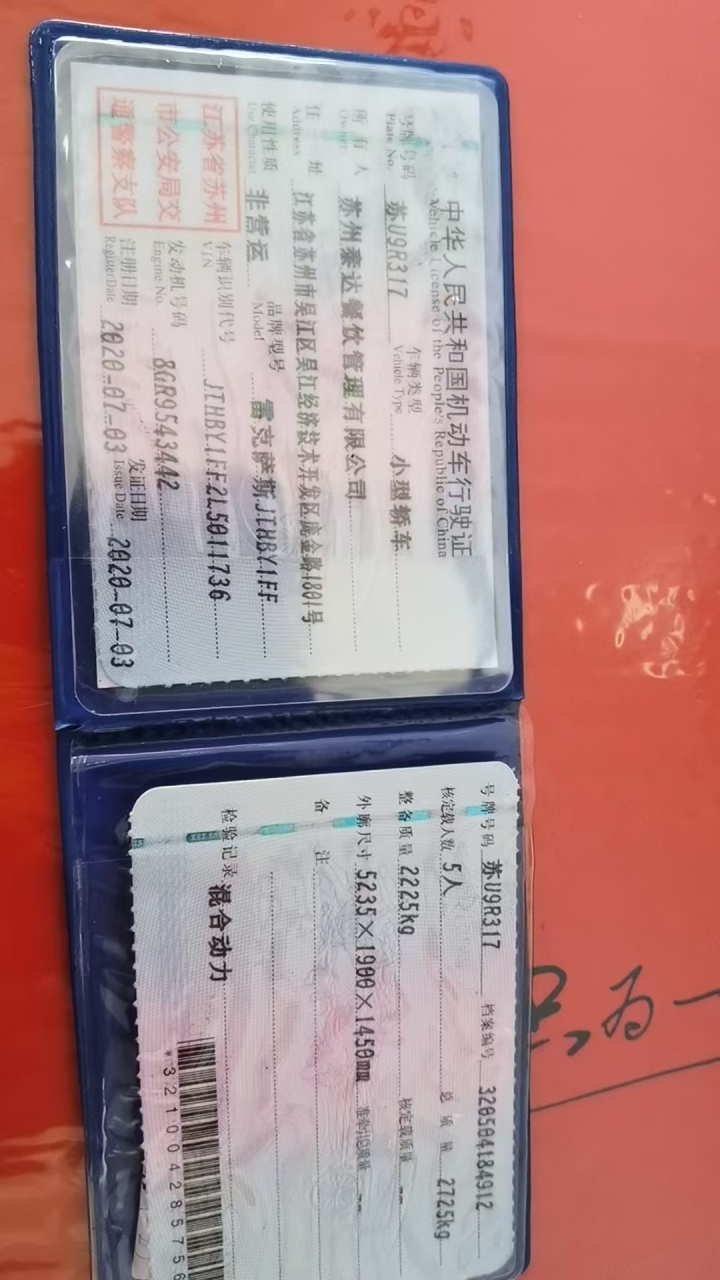 中华人民共和国机动车行驶证
Vehicle License of the People's Republic of China
号牌号码 苏U9R317 车辆类型 小型轿车
Plate No. Vehicle Type
所有人 苏州泰达餐饮管理有限公司
Owner
住址 江苏省苏州市吴江区吴江经济技术开发区庞金路1801号
Address
使用性质 非营运 品牌型号 雷克萨斯JTHBY1FF
Use Character Model
江苏省苏州
市公安局交
通警察支队
车辆识别代号 JTHBY1FF2L5011736
VIN
发动机号码 8GR9543442
Engine No.
注册日期 2020-07-03 发证日期 2020-07-03
Register Date Issue Date
号牌号码 苏U9R317 档案编号 320504184912
核定载人数 5人 总质量 2725kg
整备质量 2225kg 核定载质量 --
外廓尺寸 5235×1900×1450mm 准牵引总质量 --
备注
检验记录 混合动力
*321004285756
为一